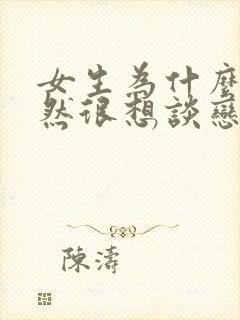 女生為什麼
然很想談戀
陳濤